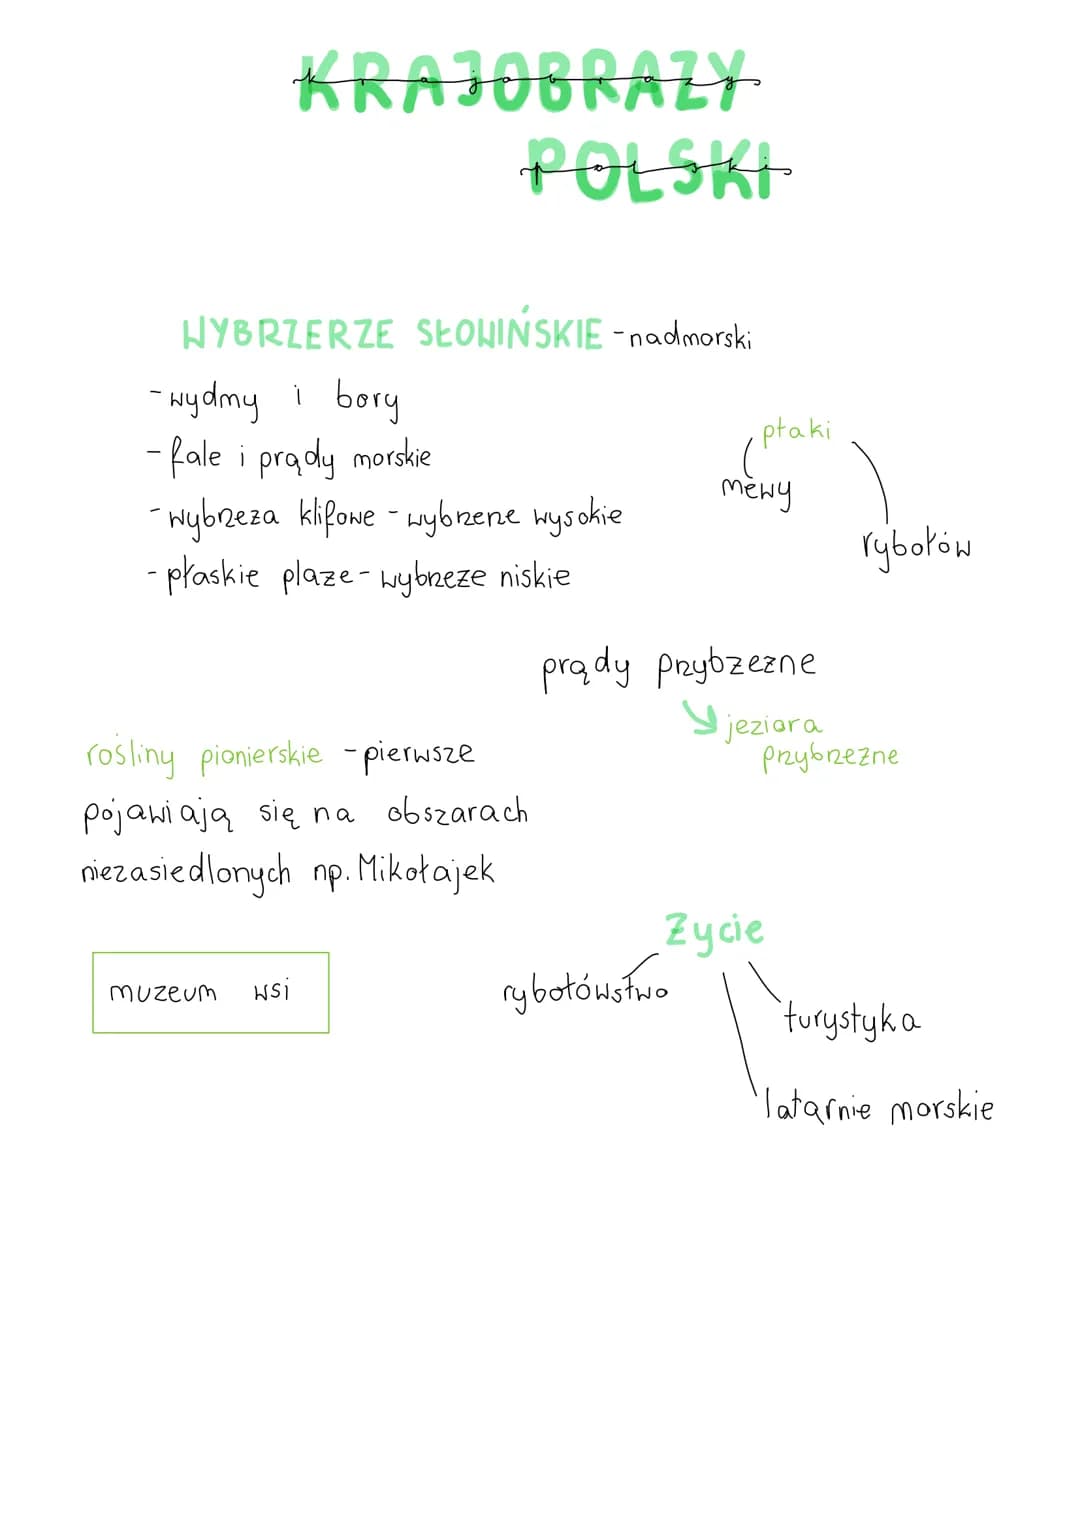 KRAJOBRAZY
krajobrazy
POLSKI
polski
WYBRZERZE SŁOWIŃSKIE - nadmorski
- wydmy i bory
- fale i prądy morskie
- wybrzeża klifowe - wybrzeże wysokie
- płaskie plaże - wybrzeże niskie
ptaki
mewy
rybołów
prądy przybzeżne
jeziora
przybrzeżne
rośliny pionierskie - pierwsze
pojawiają się na obszarach
niezasiedlonych np. Mikołajek
Życie
rybołówstwo
muzeum wsi
turystyka
latarnie morskie